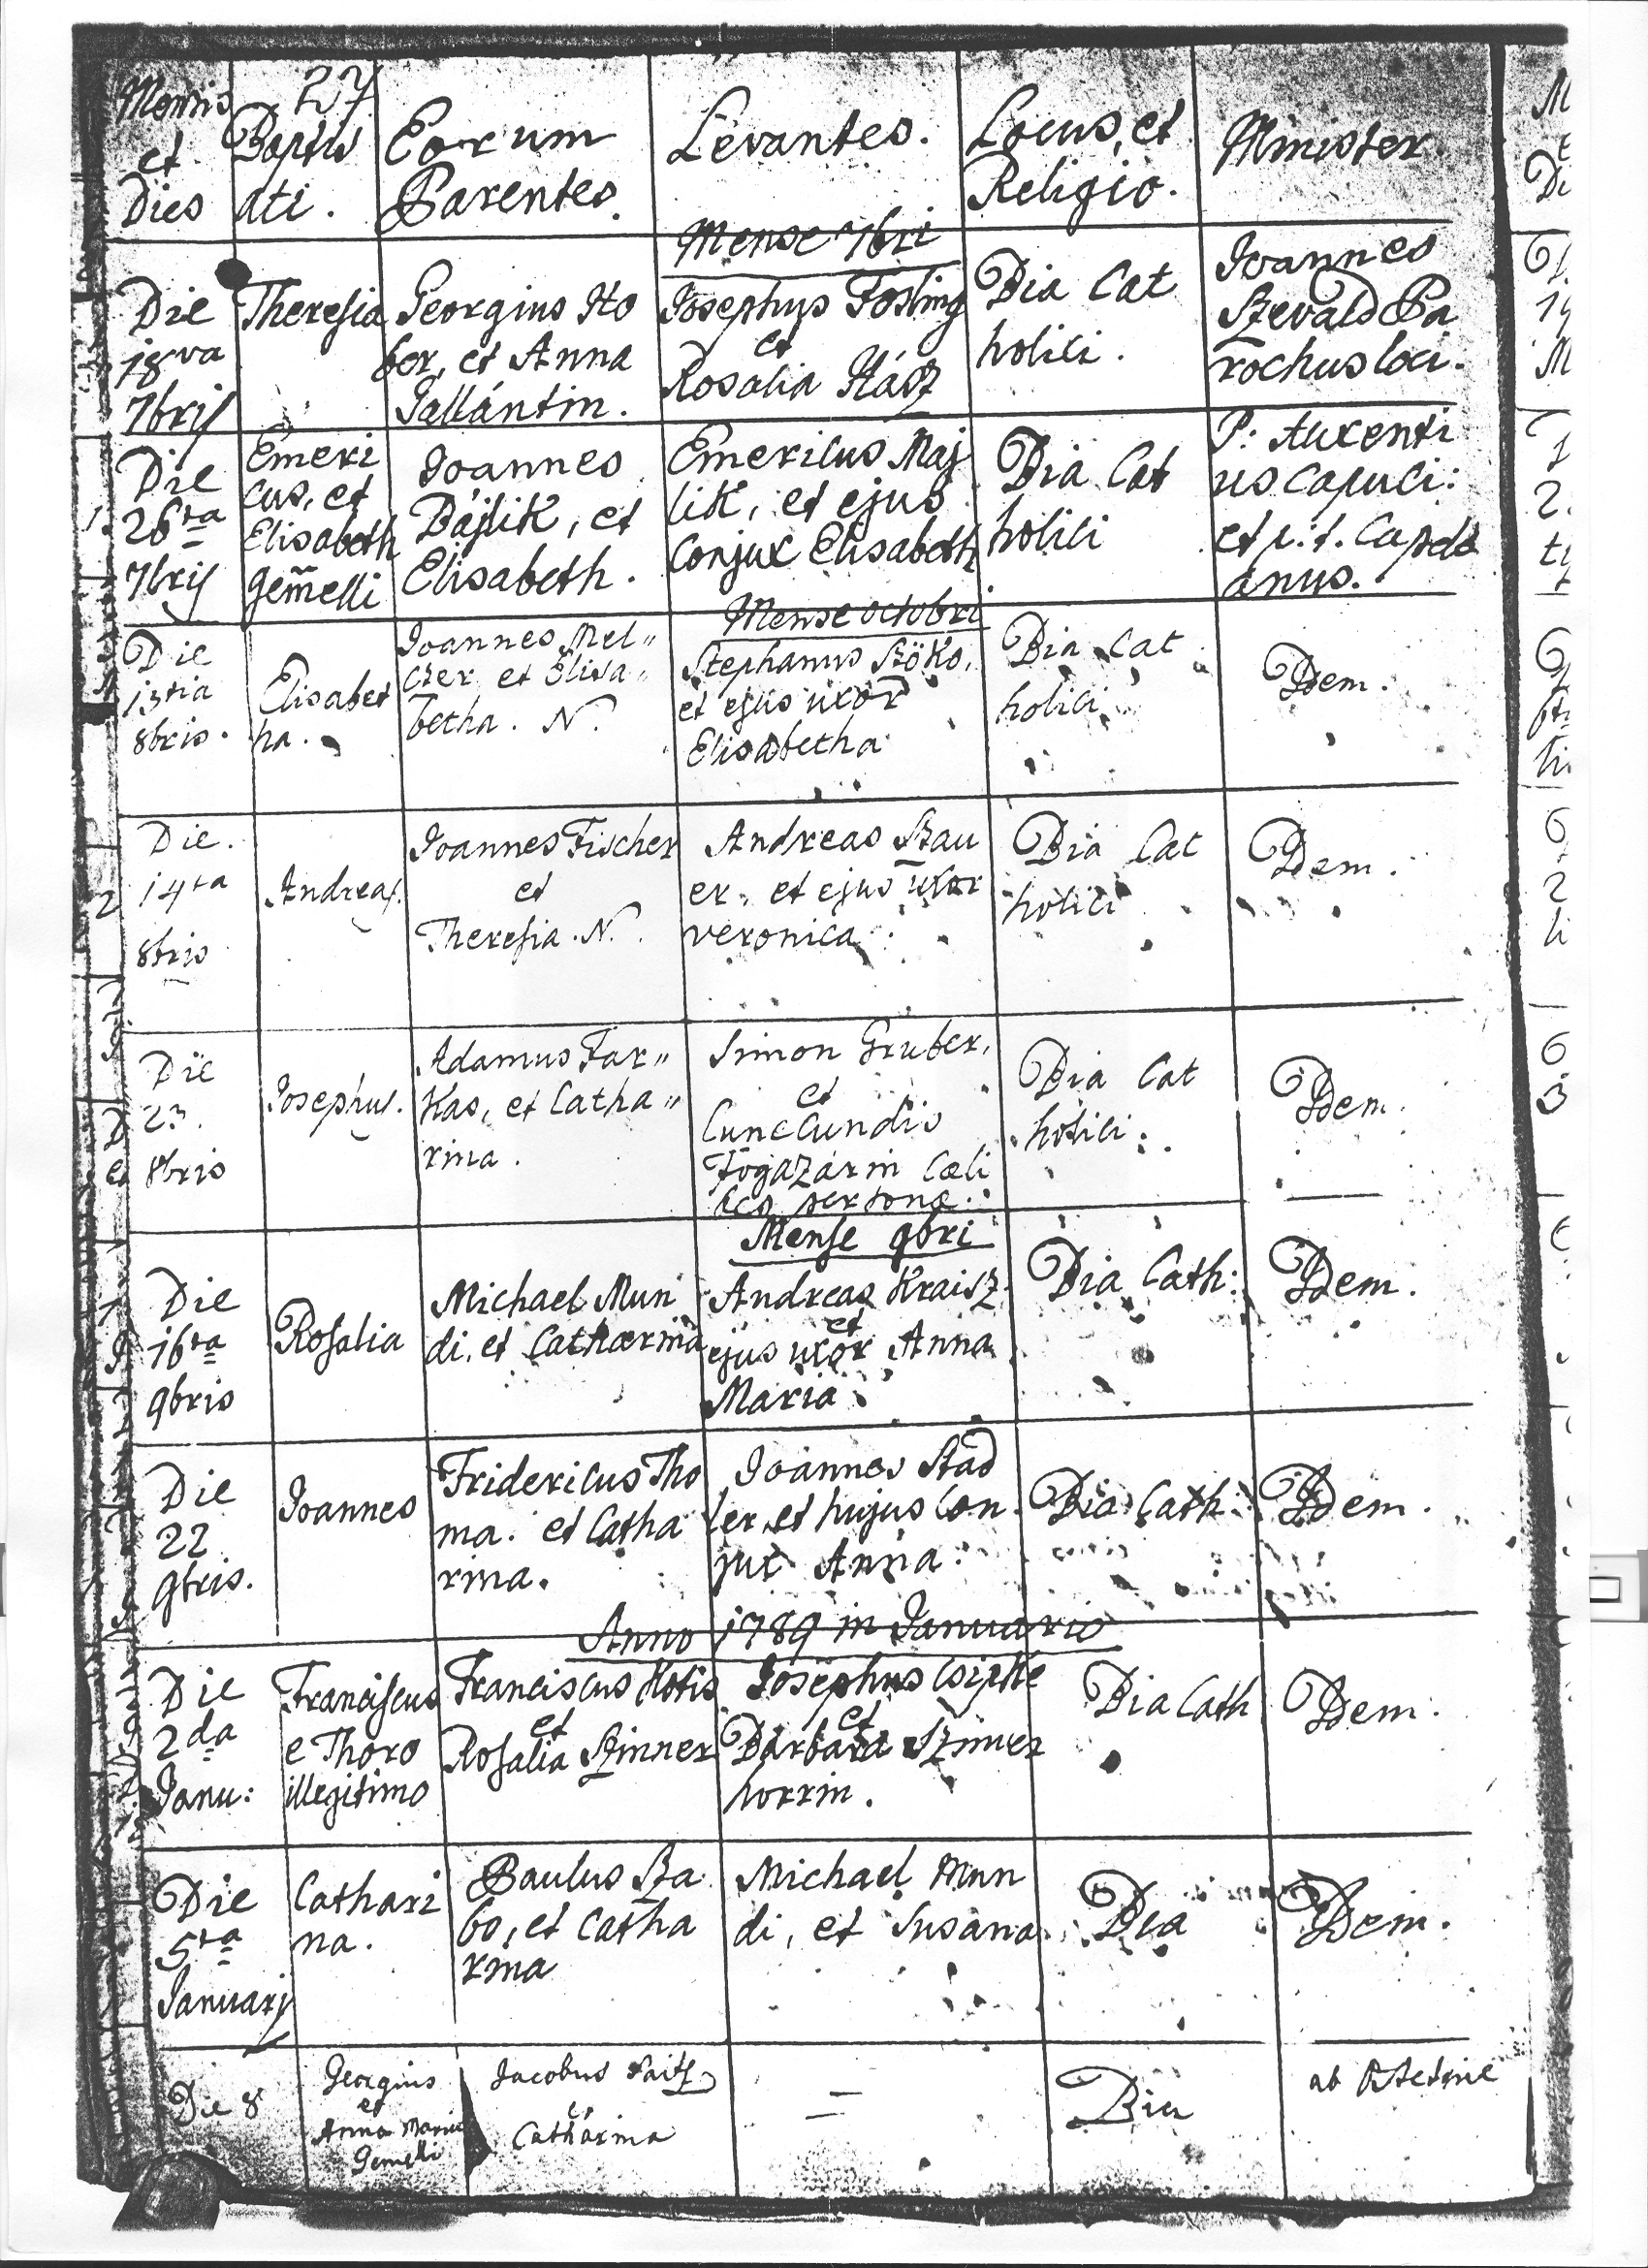 27
Mensis
et
Dies
Baptis
ati.
Eorum
Parentes.
Levantes.
Locus, et
Religio.
Minister.
Mense 7bri
Die
18va
7brij
Theresia
Georgius Ho
ber, et Anna
Gallántin.
Josephus Fosling
et
Rosalia Hász
Dia Cat
holici.
Joannes
Szevald Pa
rochus loci.
Die
26ta
7brij
Emeri
cus, et
Elisabeth
Gemelli
Joannes
Bájlik, et
Elisabeth.
Emericus Maj
lik, et ejus
Conjux Elisabeth
Dia Cat
holici
P: Auxenti
us Capuci:
et p.t. Capell
anus.
Mense octobri
Die
13tia
8bris.
Elisabet
ha.
Joannes Mel"
czer et Elisa"
betha. N.
Stephanus Szöko,
et ejus uxor
Elisabetha
Dia Cat
holici
Idem.
Die.
14ta
8bris
Andreas.
Joannes Fischer
et
Theresia. N.
Andreas Szau
er, et ejus uxor
veronica.
Dia Cat
holici
Idem.
Die
23.
8bris
Josephus.
Adamus Far"
kas, et Catha"
rina.
Simon Gruber,
et
Cunecundis
Fogazárin Cæli
bes personæ.
Dia Cat
holici.
Idem.
Mense 9bri
Die
16ta
9bris
Rosalia
Michael Mun
di, et Catharina
Andreas Kraisz
et
ejus uxor Anna
Maria.
Dia Cath:
Idem.
Die
22
9bris.
Joannes
Fridericus Tho
ma. et Catha
rina.
Joannes Stad
ler, et hujus Con
jux Anna.
Dia Cath:
Idem.
Anno 1789 in Januario
Die
2da
Janu:
Franciscus
e Thoro
illegitimo
Franciscus Kotis
et
Rosalia Szinner
Josephus Csipke
et
Barbara Szinwer
horrin.
Dia Cath
Idem.
Die
5ta
Januarij
Cathari
na.
Paulus Sza
bo, et Catha
rina
Michael Mun
di, et Susana
Dia
Idem.
Die 8
Georgius
et
Anna Maria
Gemelli
Jacobus
et
Catharina
Dia
ab